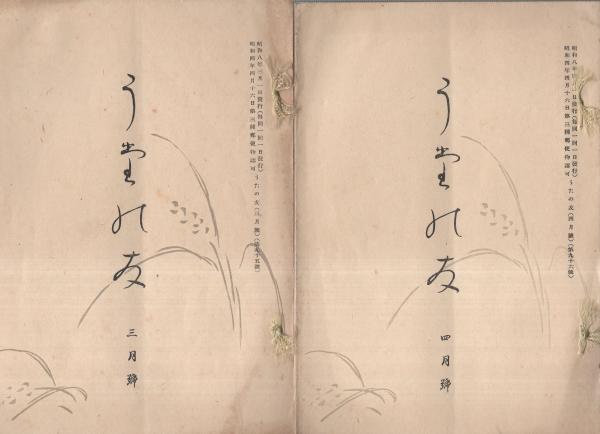 昭和八年三月一日發行(毎回一回一日發行)うたの友(三月號)(第九十五號)
昭和四年四月十六日第三種郵便物認可
う堂の友
三月號
昭和八年四月一日發行(毎回一回一日發行)うたの友(四月號)(第九十六號)
昭和四年四月十六日第三種郵便物認可
う堂の友
四月號